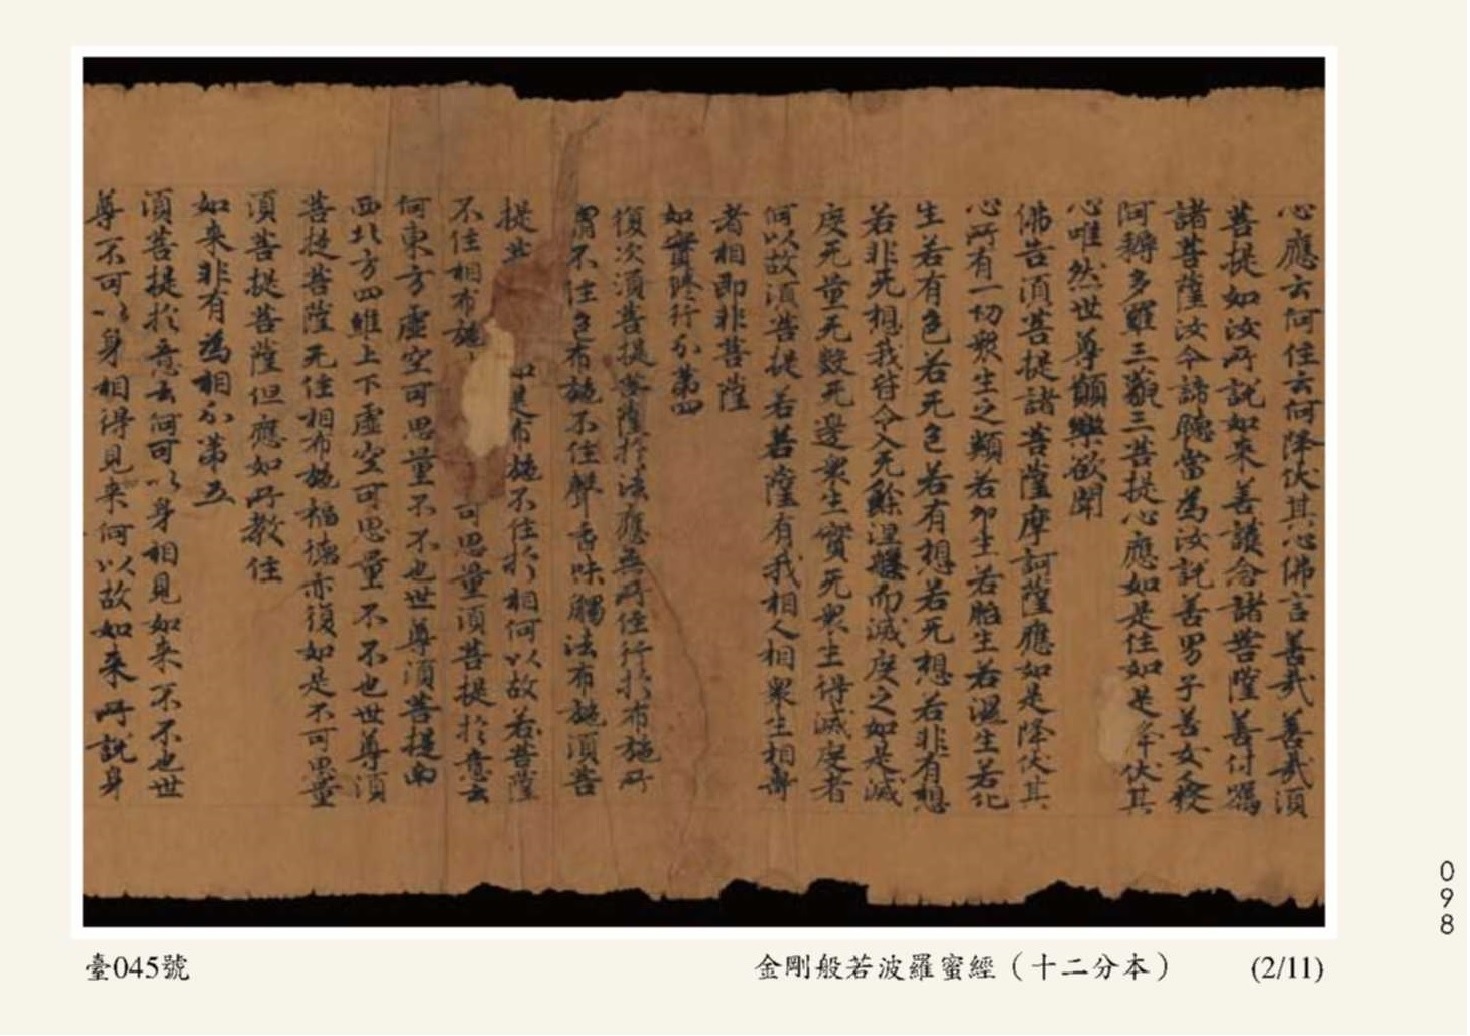 心應云何住云何降伏其心佛言善哉善哉須
菩提如汝所說如来善護念諸菩薩善付囑
諸菩薩汝今諦聽當為汝說善男子善女發
阿耨多羅三藐三菩提心應如是住如是降伏其
心唯然世尊願樂欲聞
佛告須菩提諸菩薩摩訶薩應如是降伏其
心所有一切衆生之類若卵生若胎生若濕生若化
生若有色若无色若有想若无想若非有想
若非无想我皆令入无餘涅槃而滅度之如是滅
度无量无數无邊衆生實无衆生得滅度者
何以故須菩提若菩薩有我相人相衆生相壽
者相即非菩薩
如實脩行分第四
復次須菩提菩薩於法應無所住行於布施所
謂不住色布施不住聲香味觸法布施須菩
提菩 如是布施不住於相何以故若菩薩
不住相布施 可思量須菩提於意云
何東方虛空可思量不不也世尊須菩提南
西北方四維上下虛空可思量不不也世尊須
菩提菩薩无住相布施福德亦復如是不可思量
須菩提菩薩但應如所教住
如来非有為相分第五
須菩提於意云何可以身相見如来不不也世
尊不可以身相得見来何以故如来所說身
臺045號
金剛般若波羅蜜經（十二分本）
(2/11)
098